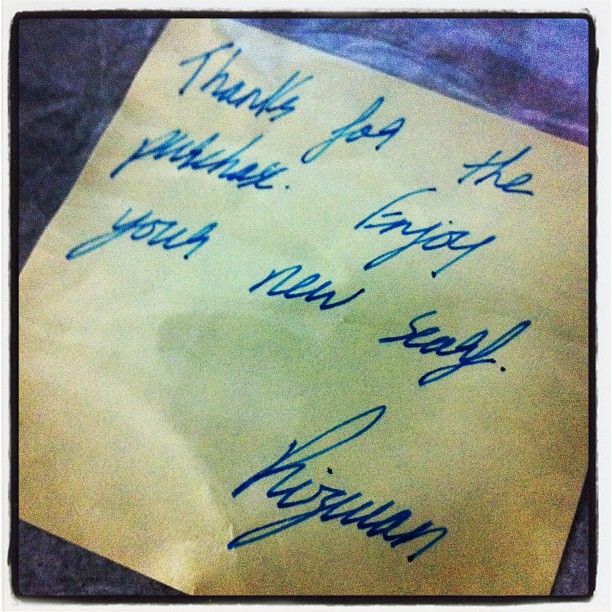 Thanks for the
purchase. Enjoy
your new scarf.
Rizwan